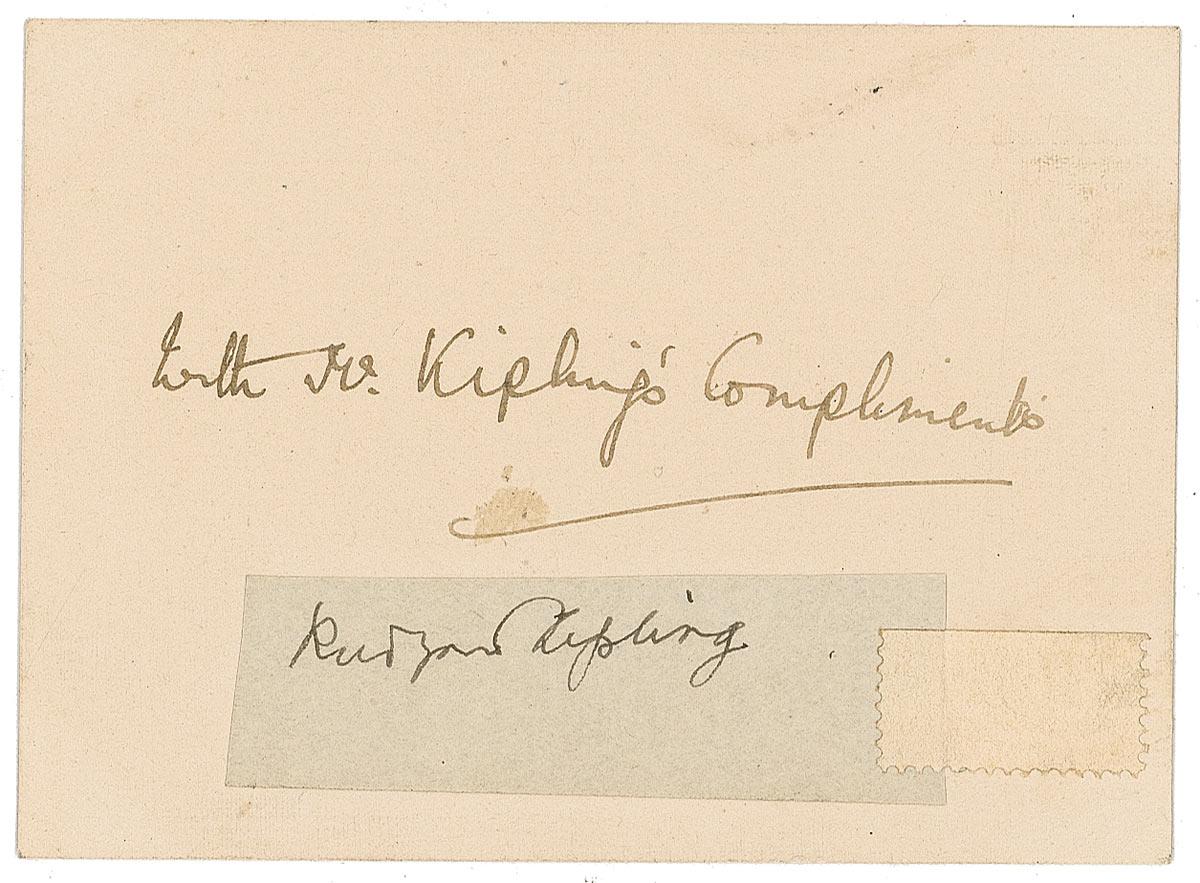 With Mr. Kipling's Compliments
Rudyard Kipling